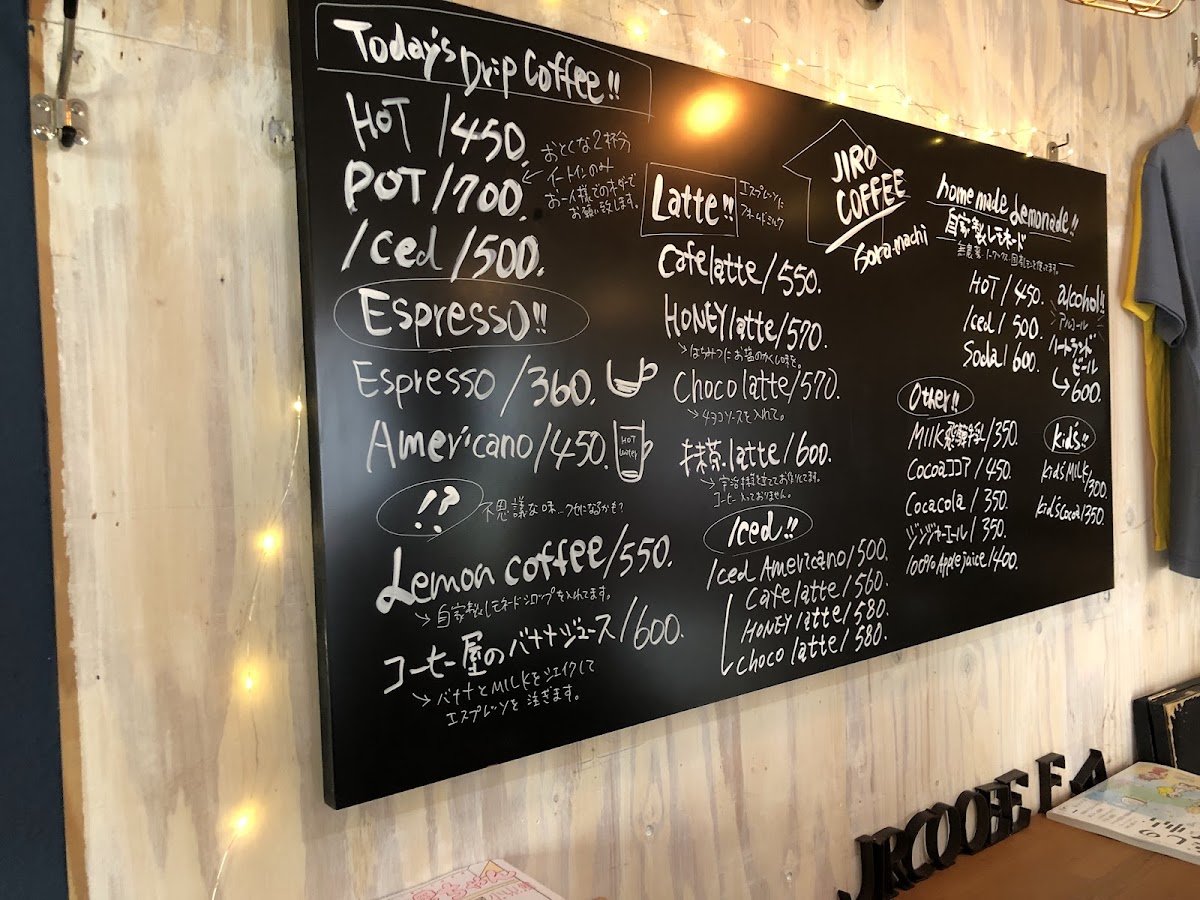 Today's Drip Coffee!!
HOT /450.
POT /700.
おとくな2杯分
イートインのみ
お一人様でのオーダーで
お願い致します。
Iced /500.
Espresso!!
Espresso /360.
Americano/450.
HOT
water
!?
不思議な味…クセになるかも?
Lemon coffee/550.
自家製レモネードシロップを入れてます。
コーヒー屋のバナナジュース/600.
バナナとMILKをシェイクして
エスプレッソを注ぎます。
Latte!!
エスプレッソに
フォームドミルク
Cafe latte/550.
HONEY latte/570.
はちみつにお塩のかくし味を。
Choco latte/570.
チョコソースを入れて。
抹茶 latte/600.
宇治抹茶を立ててお作りしてます。
コーヒー入っておりません。
Iced!!
Iced Americano/500.
Cafe latte/560.
HONEY latte/580.
Choco latte/580.
JIRO
COFFEE
home made Lemonade!!
自家製レモネード
HOT/450.
Iced/500.
Soda/600.
alcohol!!
アルコール
ハートランド
ビール
600.
Other!!
MILK飛騨牛乳/350.
Cocoaココア/450.
Cocacola/350.
ジンジャーエール/350.
100% Apple juice/400.
kid's!!
kid's MILK/300.
kid's cocoa/350.